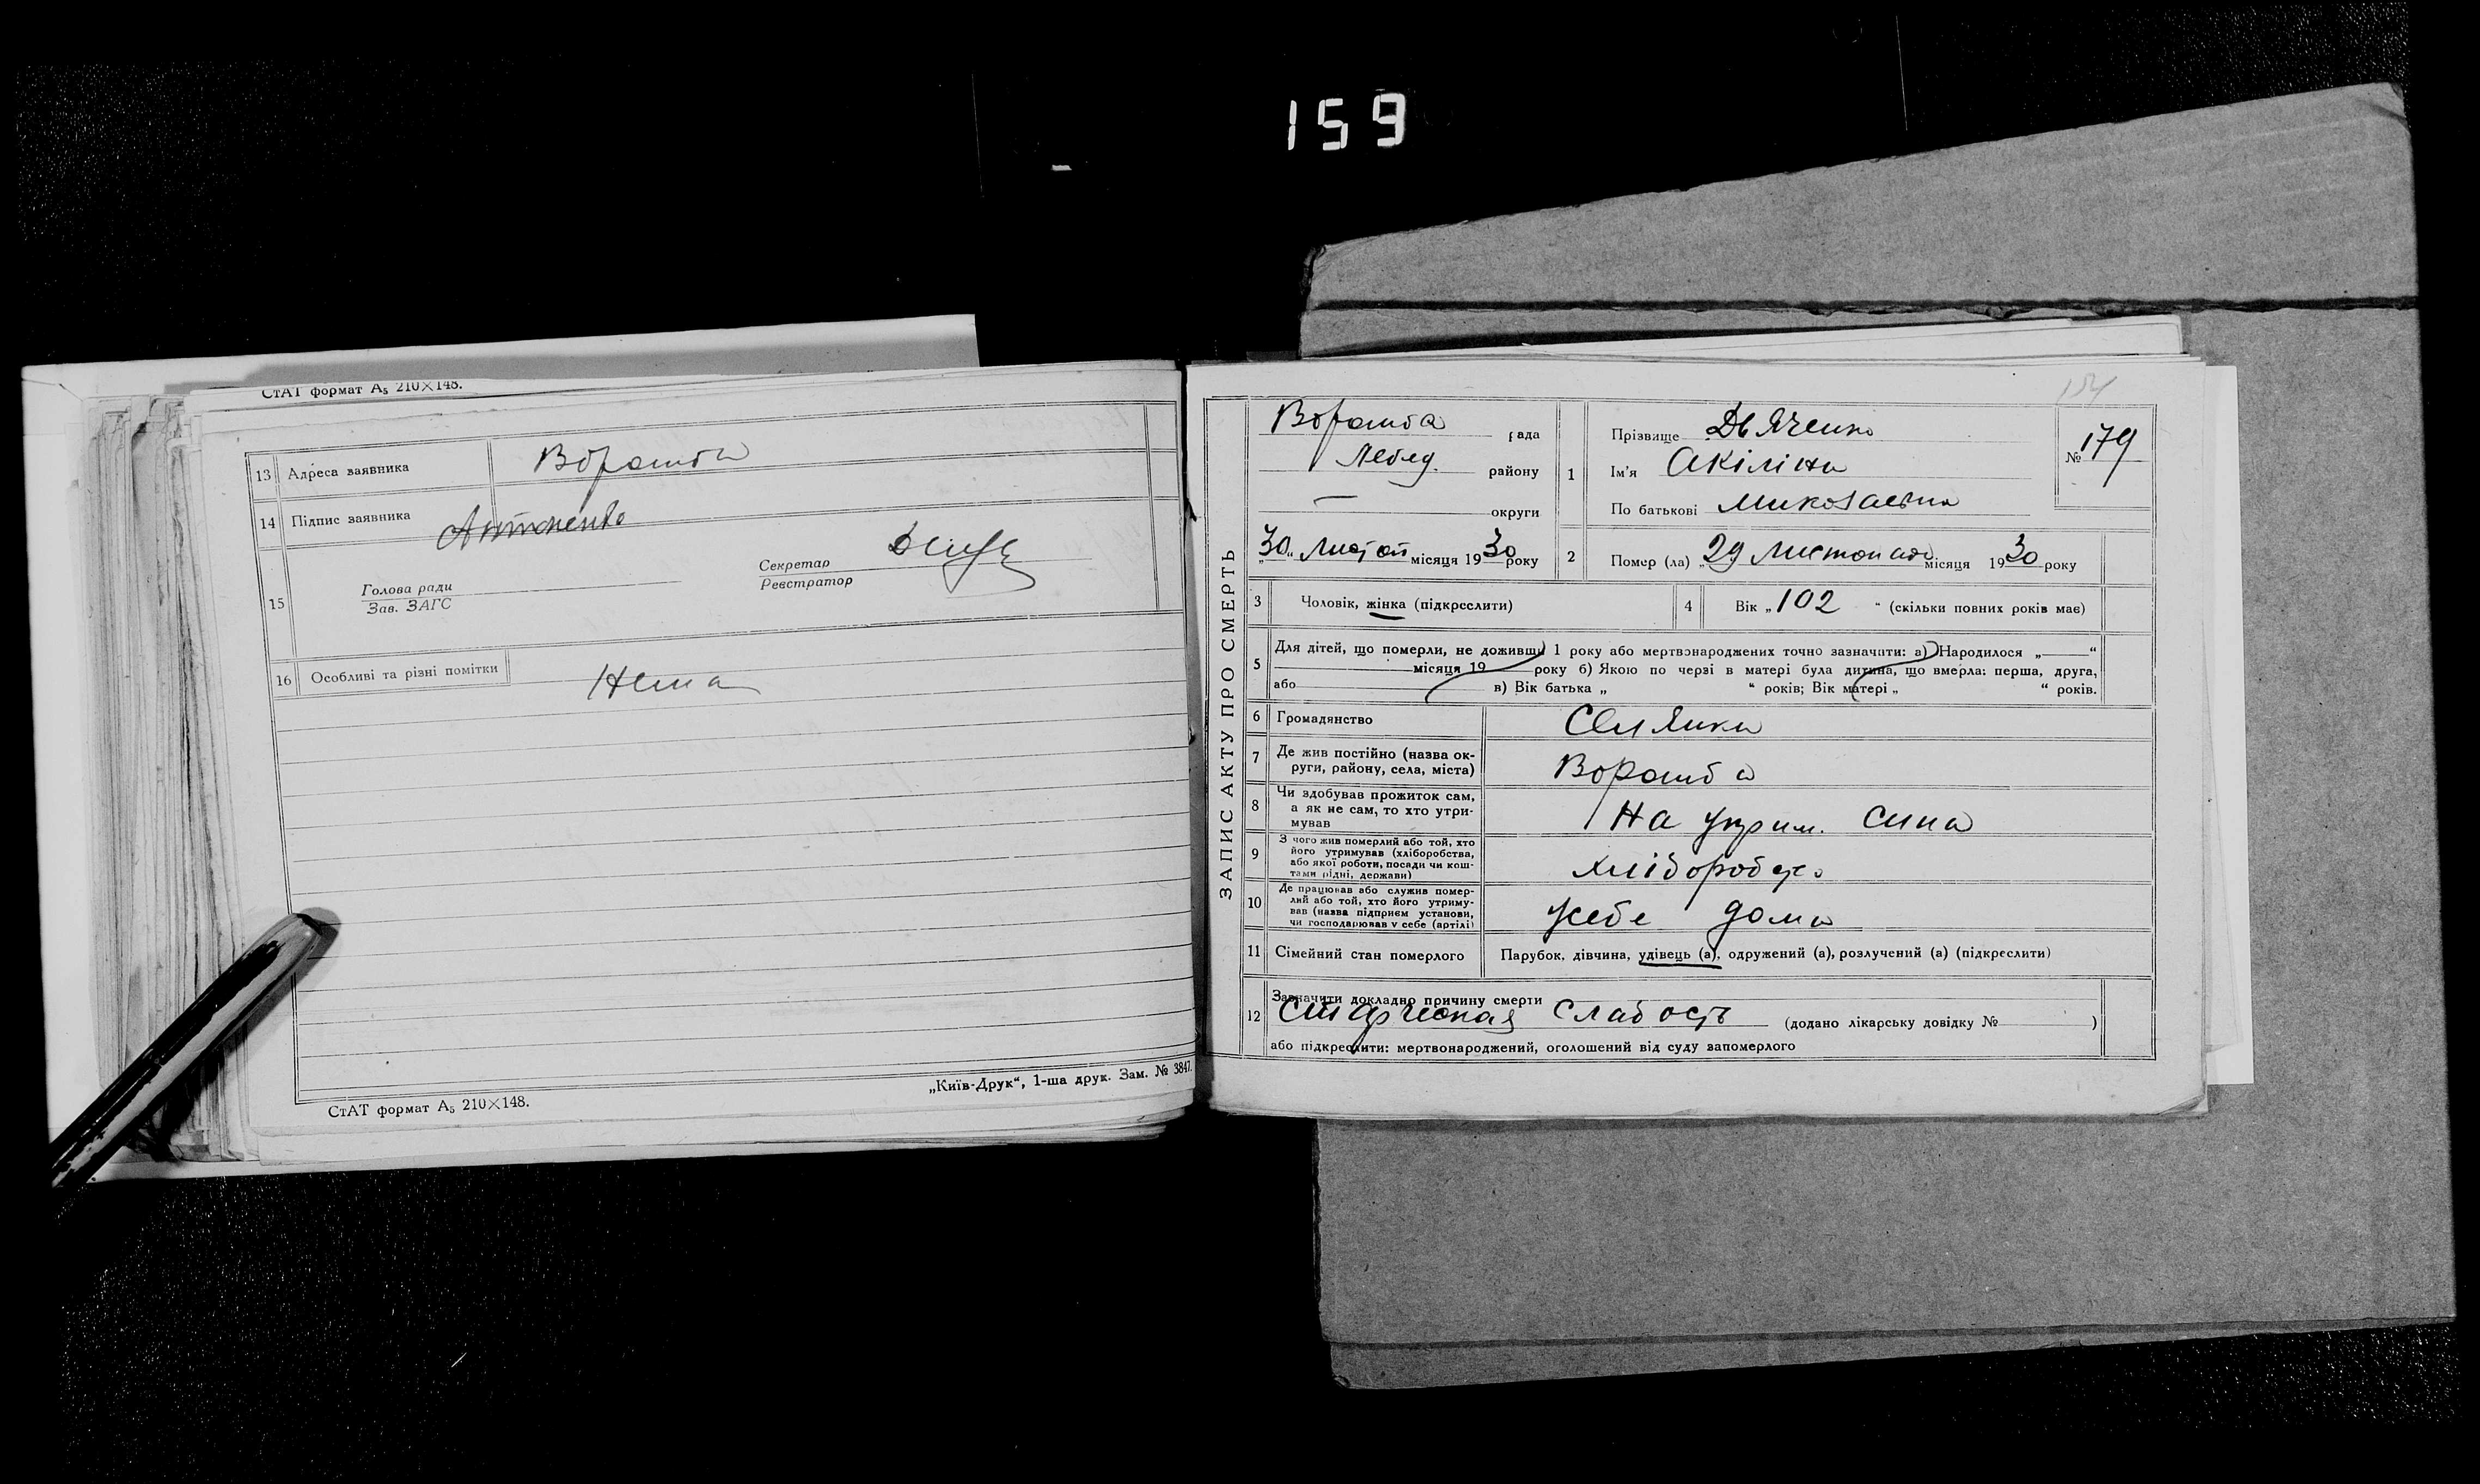 159
СтАТ формат А₅ 210×148.
13 Адреса заявника Ворожба
14 Підпис заявника Антоненко
15 Голова ради
Зав. ЗАГС
Секретар
Реєстратор
16 Особливі та різні помітки Нема
„Київ-Друк“, 1-ша друк. Зам. № 3847.
СтАТ формат А₅ 210×148.
ЗАПИС АКТУ ПРО СМЕРТЬ
Ворожба рада
Лебед. району
— округи
„30“ Листоп місяця 1930 року
1 Прізвище Дьяченко
Ім'я Акіліна
По батькові Миколаевна
№ 179
2 Помер (ла) „29 Листопада місяця 1930 року
3 Чоловік, жінка (підкреслити)
4 Вік „102“ (скільки повних років має)
5 Для дітей, що померли, не доживши 1 року або мертвонароджених точно зазначити: а) Народилося „——“
місяця 19 року б) Якою по черзі в матері була дитина, що вмерла: перша, друга,
або в) Вік батька „ “ років; Вік матері „ “ років.
6 Громадянство Селянка
7 Де жив постійно (назва ок-
руги, району, села, міста) Ворожба
8 Чи здобував прожиток сам,
а як не сам, то хто утри-
мував На утрим. сина
9 З чого жив померлий або той, хто
його утримував (хліборобства,
або якої роботи, посади чи кош-
тами рідні, держави) хлібороб
10 Де працював або служив помер-
лий або той, хто його утриму-
вав (назва підприєм установи,
чи господарював у себе (артілі) усебе дома
11 Сімейний стан померлого Парубок, дівчина, удівець (а), одружений (а), розлучений (а) (підкреслити)
12 Зазначити докладно причину смерти
Старческая слабость (додано лікарську довідку № )
або підкреслити: мертвонароджений, оголошений від суду запомерлого